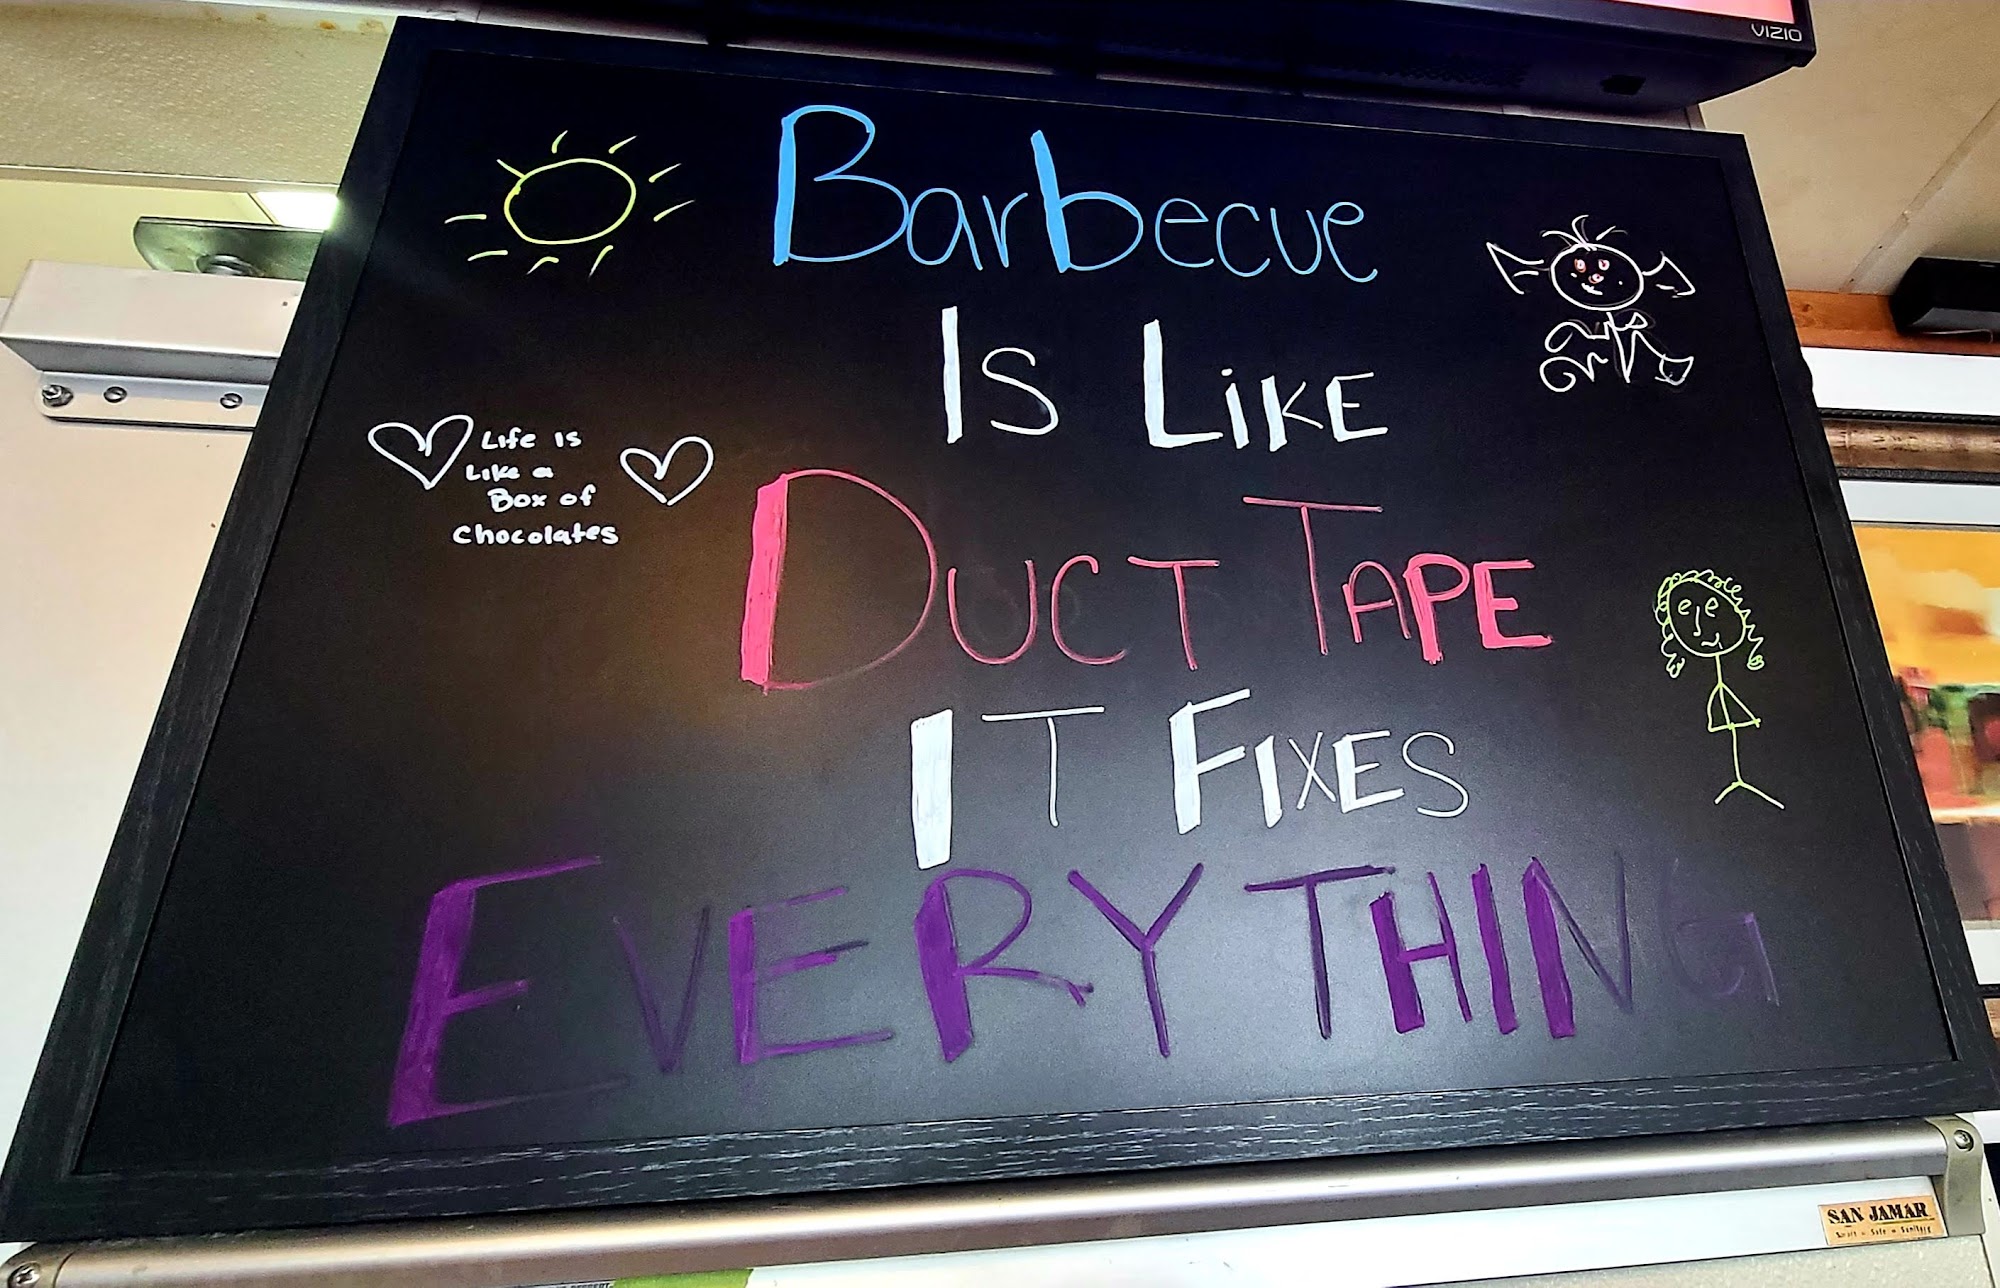 VIZIO
Barbecue
Is Like
Duct Tape
It Fixes
Everything
Life is
Like a
Box of
Chocolates
SAN JAMAR